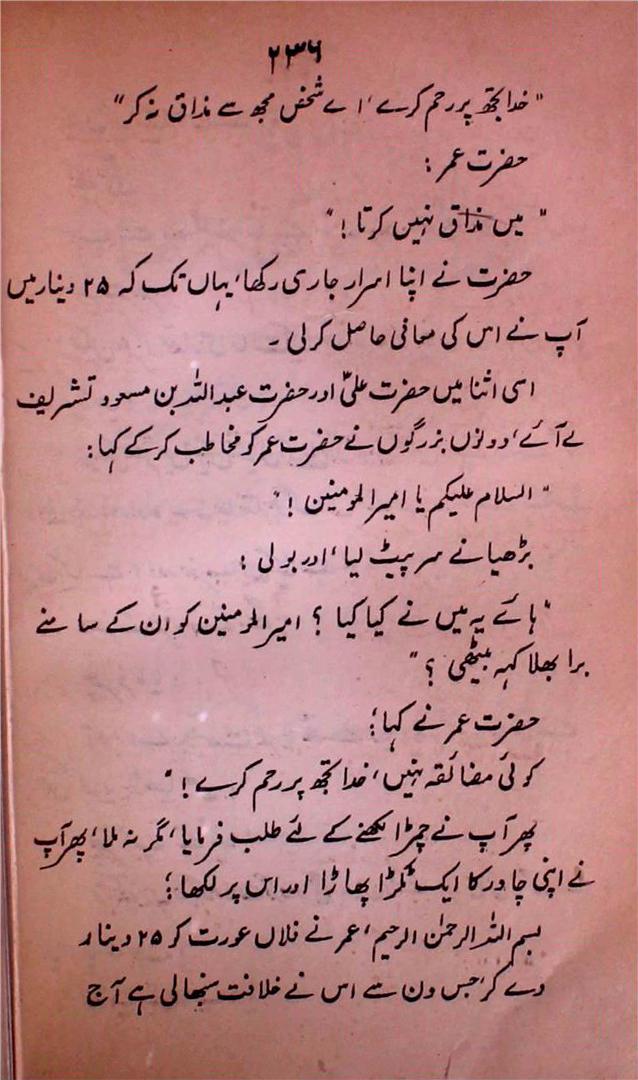 ۲۳۶
"خدا تجھ پر رحم کرے، اے شخص مجھ سے مذاق نہ کر"
حضرت عمر :
"میں مذاق نہیں کرتا !"
حضرت نے اپنا اصرار جاری رکھا، یہاں تک کہ ۲۵ دینار میں
آپ نے اس کی معافی حاصل کرلی ۔
اسی اثنا میں حضرت علیؓ اور حضرت عبداللہ بن مسعود تشریف
لے آئے، دونوں بزرگوں نے حضرت عمر کو مخاطب کرکے کہا :
"السلام علیکم یا امیر المومنین !"
بڑھیا نے سر پیٹ لیا، اور بولی :
"ہائے یہ میں نے کیا کیا ؟ امیر المومنین کو ان کے سامنے
برا بھلا کہہ بیٹھی ؟"
حضرت عمر نے کہا :
کوئی مضائقہ نہیں، خدا تجھ پر رحم کرے !"
پھر آپ نے چمڑا لکھنے کے لئے طلب فرمایا، مگر نہ ملا، پھر آپ
نے اپنی چادر کا ایک ٹکڑا پھاڑا اور اس پر لکھا :
بسم اللہ الرحمٰن الرحیم، عمر نے فلاں عورت کو ۲۵ دینار
دے کر، جس دن سے اس نے خلافت سنبھالی ہے آج